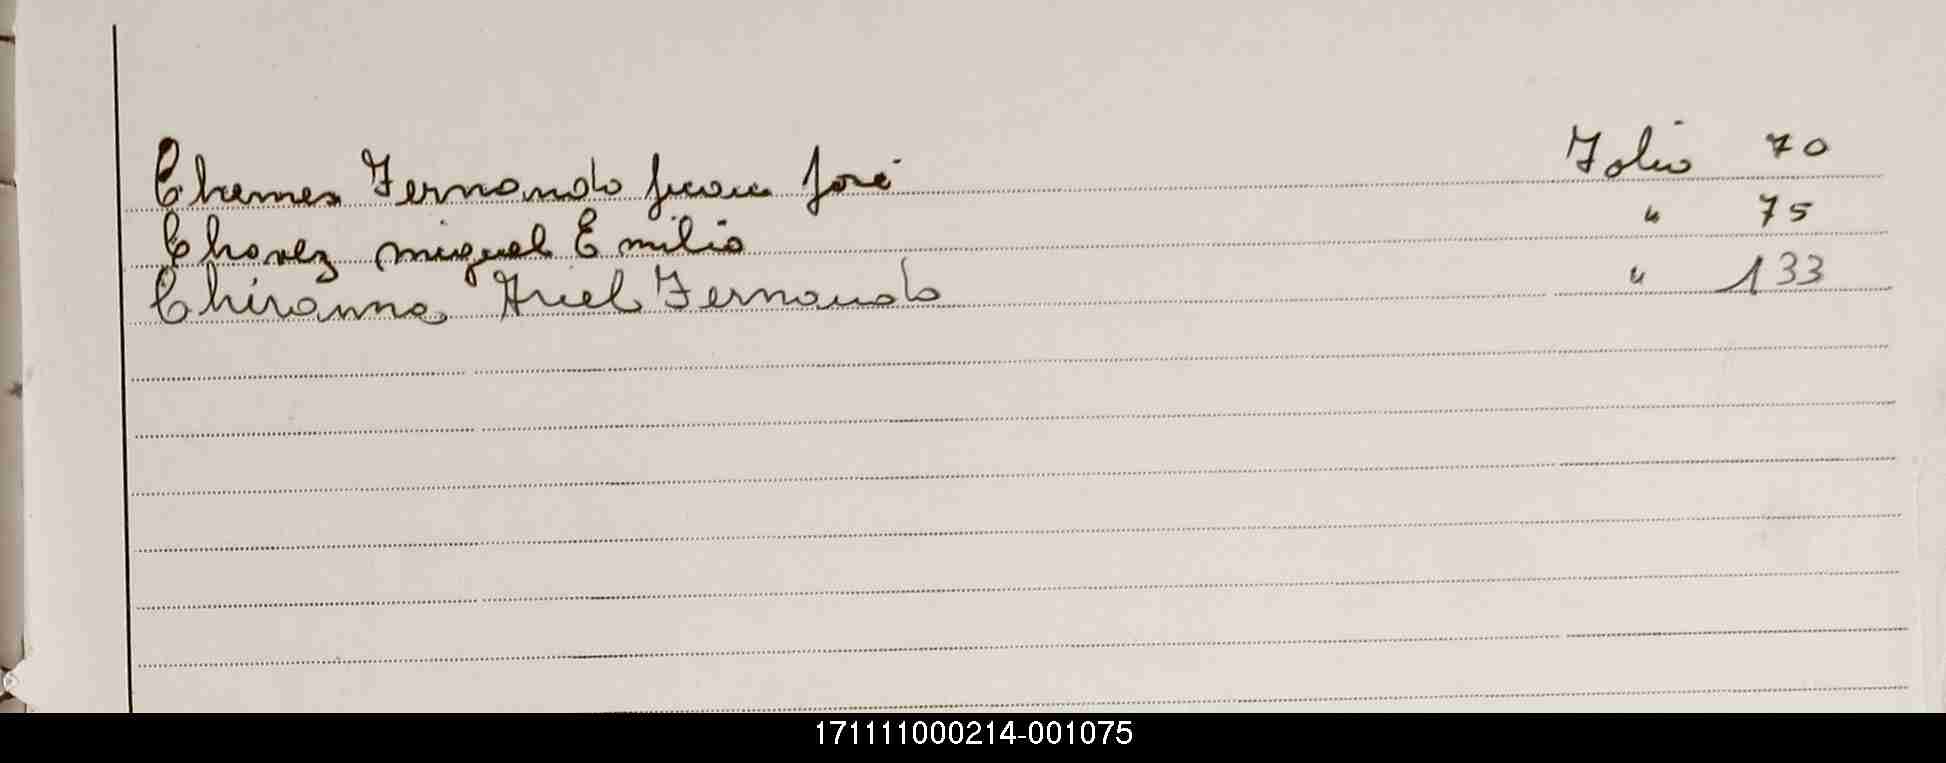 Chemes Fernando Juan José Folio 70
Chavez Miguel Emilio " 75
Chiranna Ariel Fernando " 133
171111000214-001075